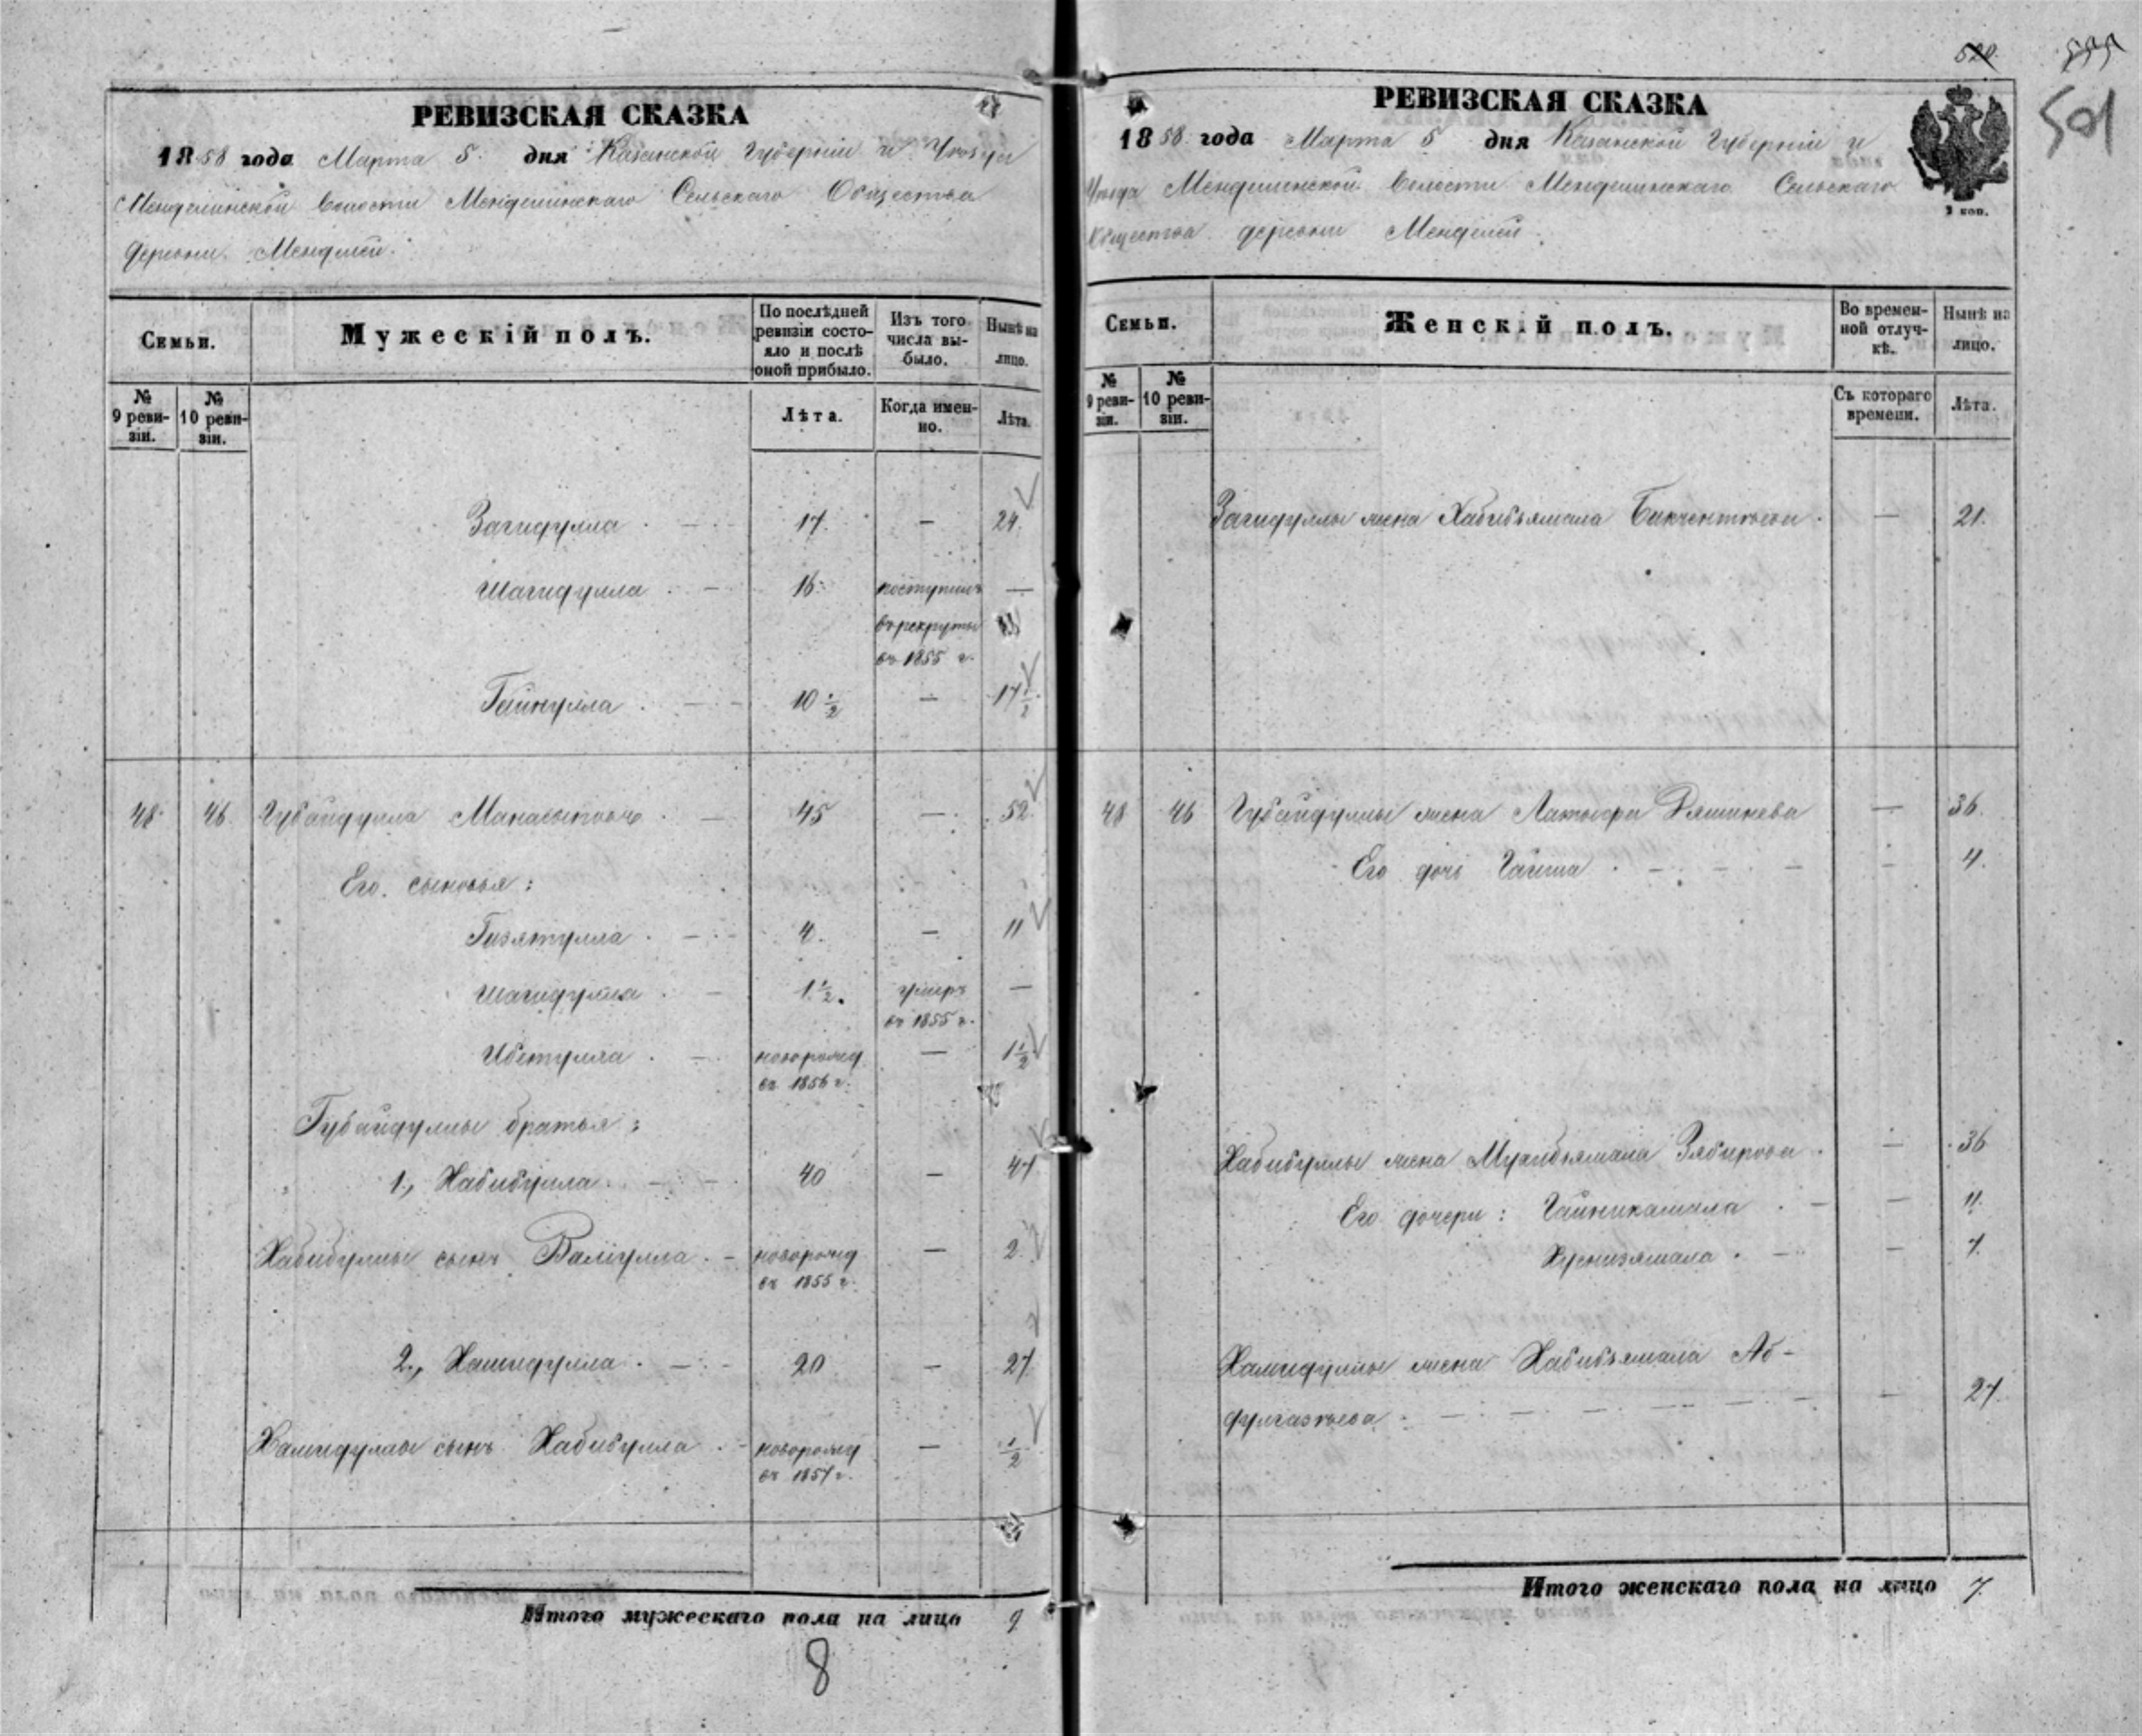 520.
501
РЕВИЗСКАЯ СКАЗКА
1858 года Марта 5 дня Казанской Губернiи и Уѣзда
Менделинской Волости Менделинскаго Сельскаго Общества
деревни Менделей.
Семьи.
Мужескій полъ.
По послѣдней ревизіи состояло и послѣ оной прибыло.
Изъ того числа выбыло.
Нынѣ на лицо.
№ 9 ревизіи.
№ 10 ревизіи.
Лѣта.
Когда именно.
Лѣта.
Загидулла 17. — 24.
Шагидулла 16. поступилъ —
въ рекруты
въ 1855 г.
Гайнулла 10 1/2 — 17 1/2
48. 46. Губайдулла 45 — 52.
Его сыновья:
Гизятулла 4. — 11
Шагидулла 1 1/2. умеръ —
въ 1855 г.
новорожд — 1 1/2
въ 1856 г.
Губайдуллы братья:
1., Хабибулла 40 — 47
Хабибуллы сынъ Валіулла новорожд — 2.
въ 1855 г.
2., Хамидулла 20 — 27
Хамидуллы сынъ Хабибулла новорожд — 1/2
въ 1857 г.
Итого мужескаго пола на лицо 9
8
РЕВИЗСКАЯ СКАЗКА
1858 года Марта 5 дня Казанской Губернiи и
Уѣзда Менделинской Волости Менделинскаго Сельскаго
Общества деревни Менделей.
Семьи.
Женскій полъ.
Во временной отлучкѣ.
Нынѣ на лицо.
№ 9 ревизіи.
№ 10 ревизіи.
Съ котораго времени.
Лѣта.
Загидуллы жена Хабибъямала — 21.
48 46 Губайдуллы жена — 36.
Его дочь Гайша — 4.
Хабибуллы жена Зябирова — 36
Его дочери: Гайникамала — 11.
Хуснизямала — 7.
Хамидуллы жена Хабибъямала Аб-
дулгазѣева — 27.
Итого женскаго пола на лицо 7.